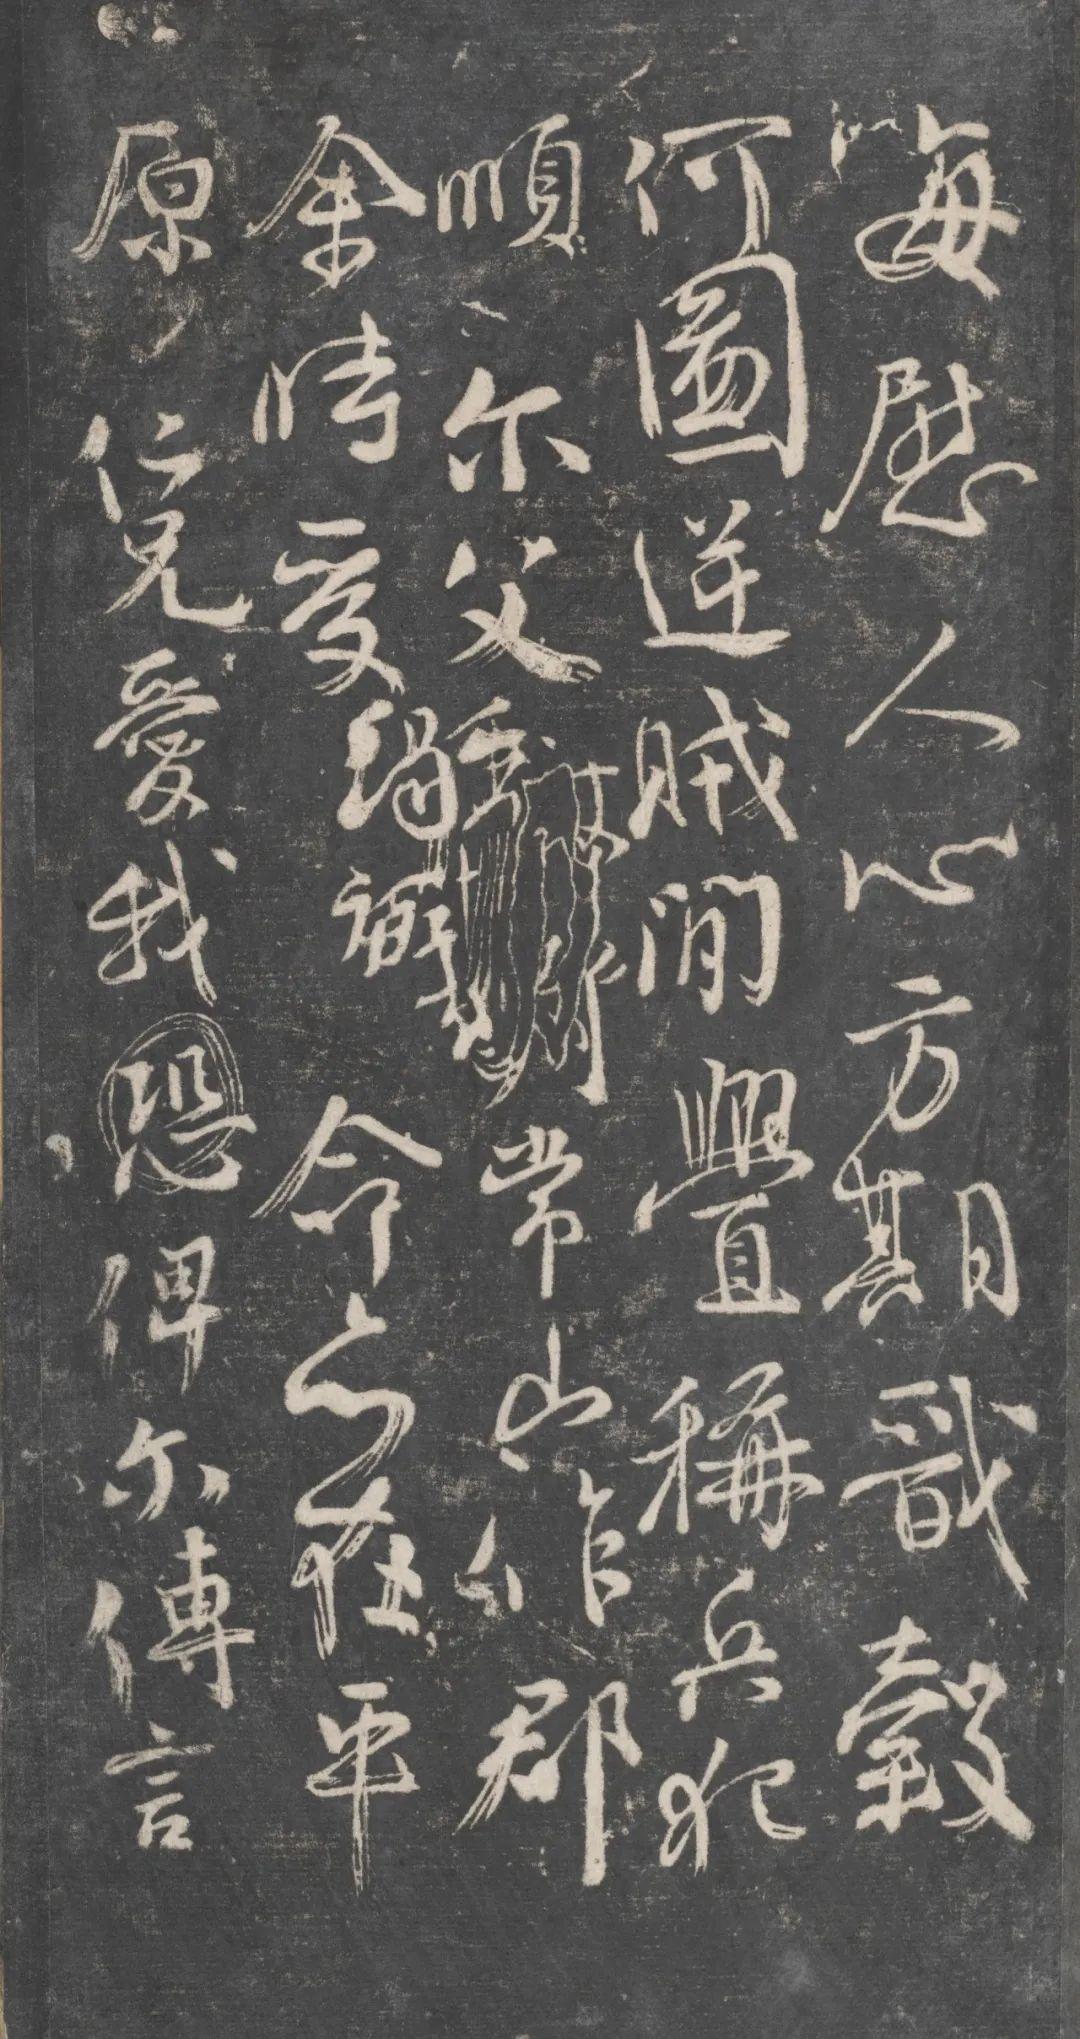 每慰人心方期戩穀
何圖逆賊閒釁稱兵犯
順尔父竭誠常山作郡
余時受命亦在平
原仁兄愛我恐俾尔傳言